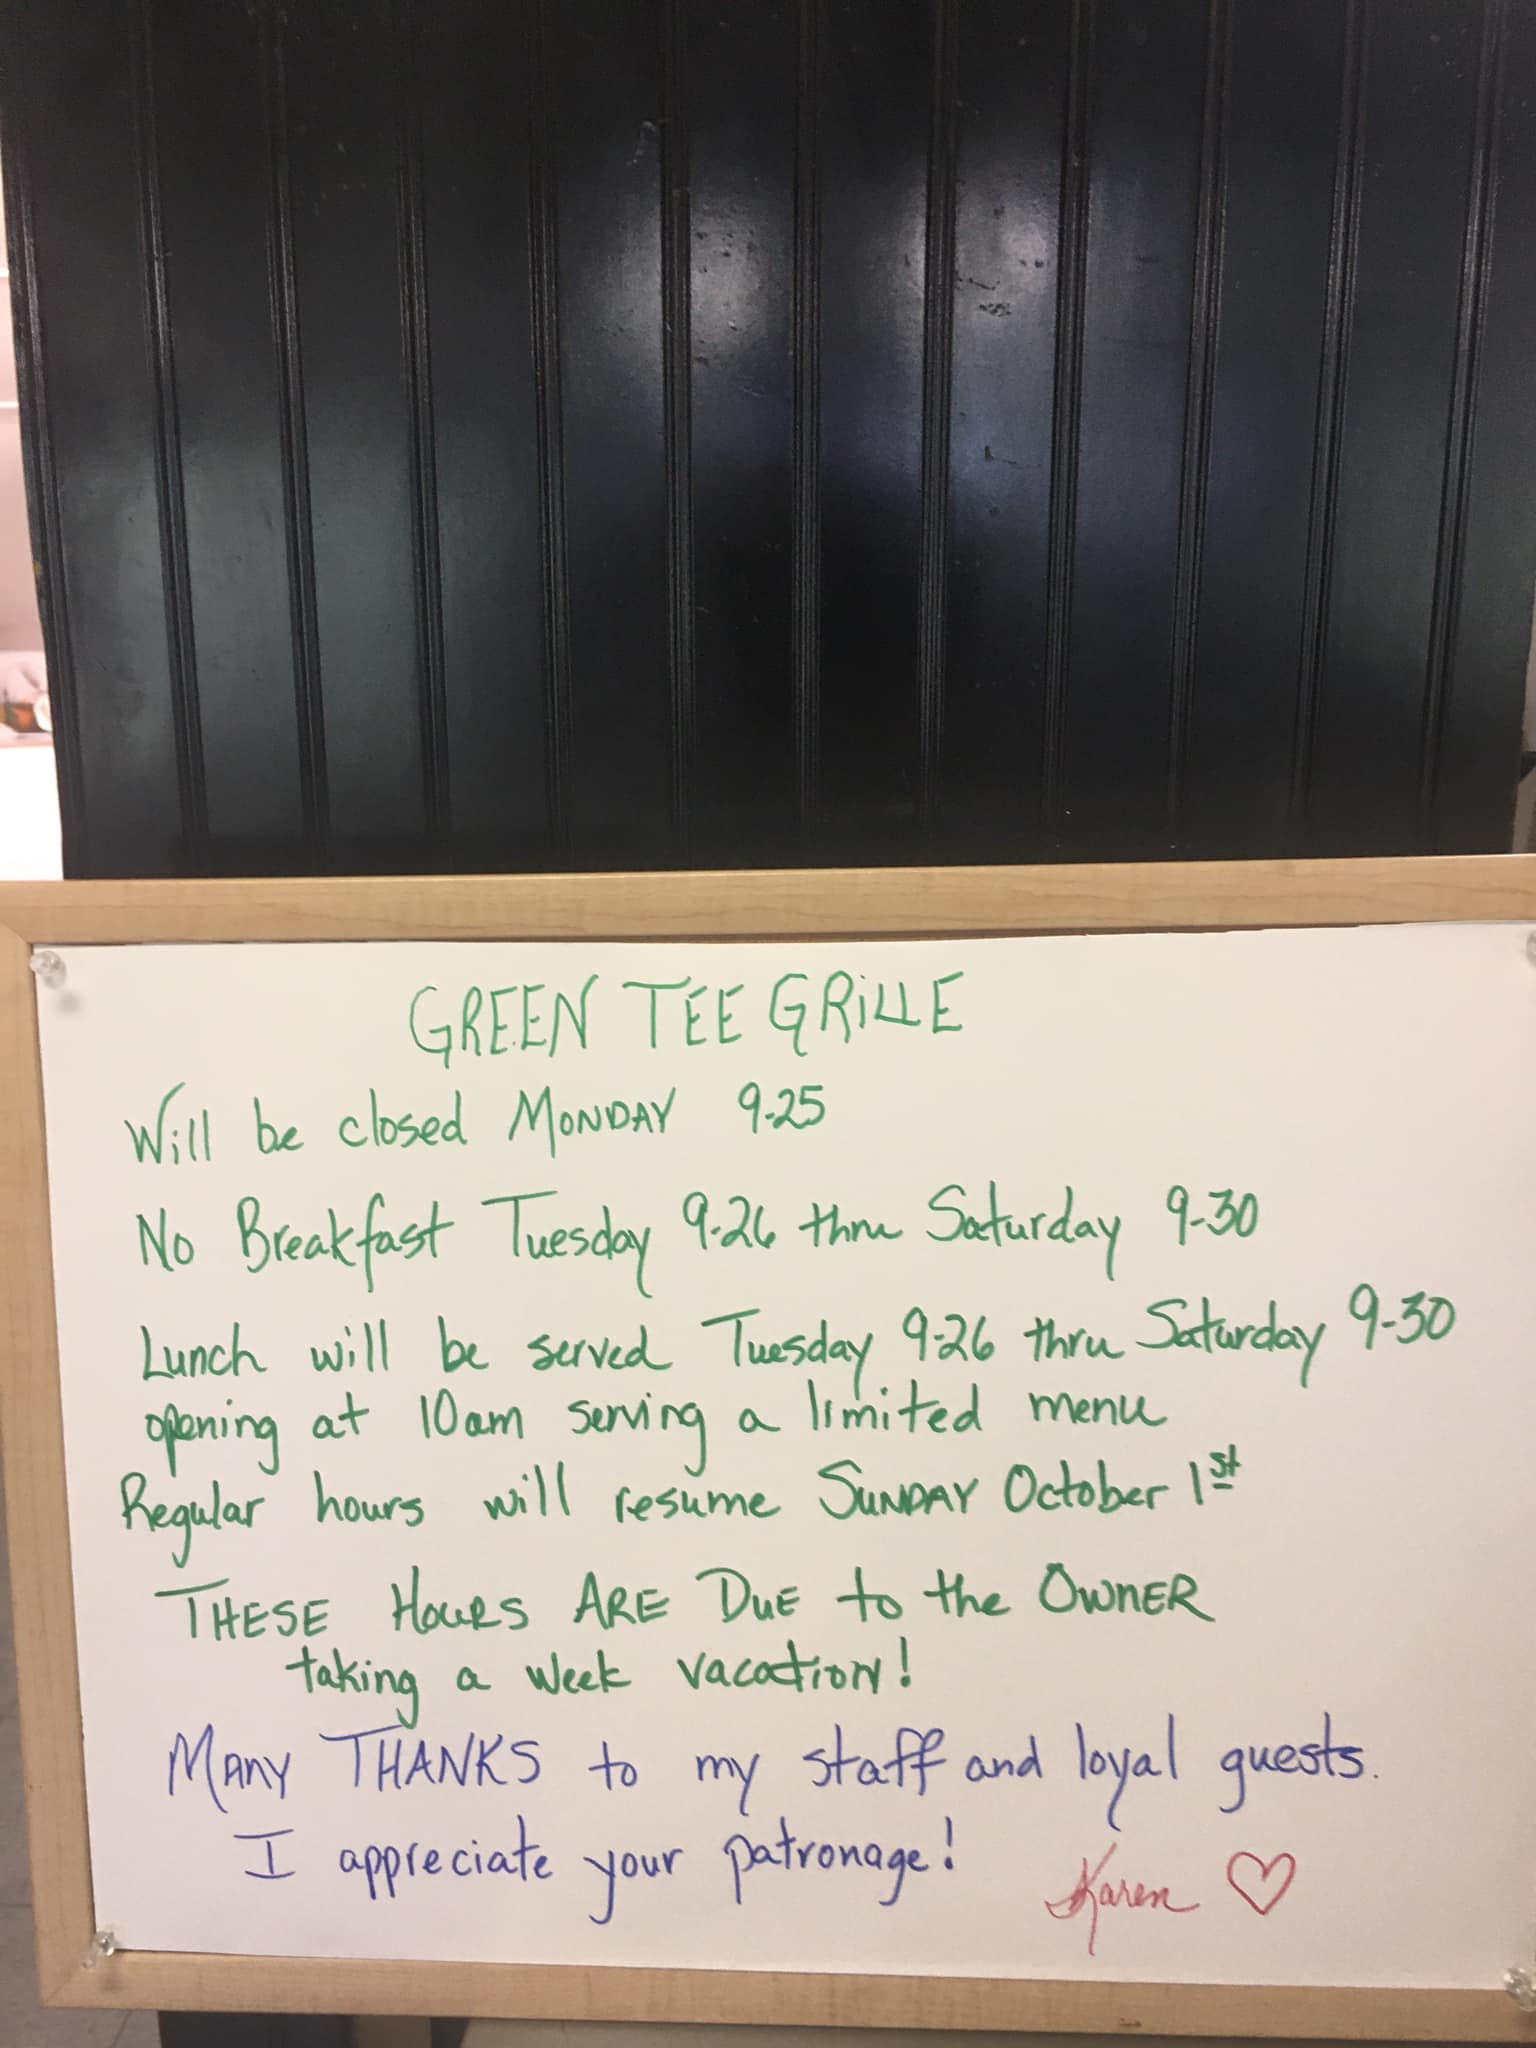 GREEN TEE GRiLLE
Will be closed MONDAY 9-25
No Breakfast Tuesday 9-26 thru Saturday 9-30
Lunch will be served Tuesday 9-26 thru Saturday 9-30
opening at 10am serving a limited menu
Regular hours will resume SUNDAY October 1st
THESE HOURS ARE DUE to the OWNER
taking a week vacation!
MANY THANKS to my staff and loyal guests.
I appreciate your patronage!
Karen ♡